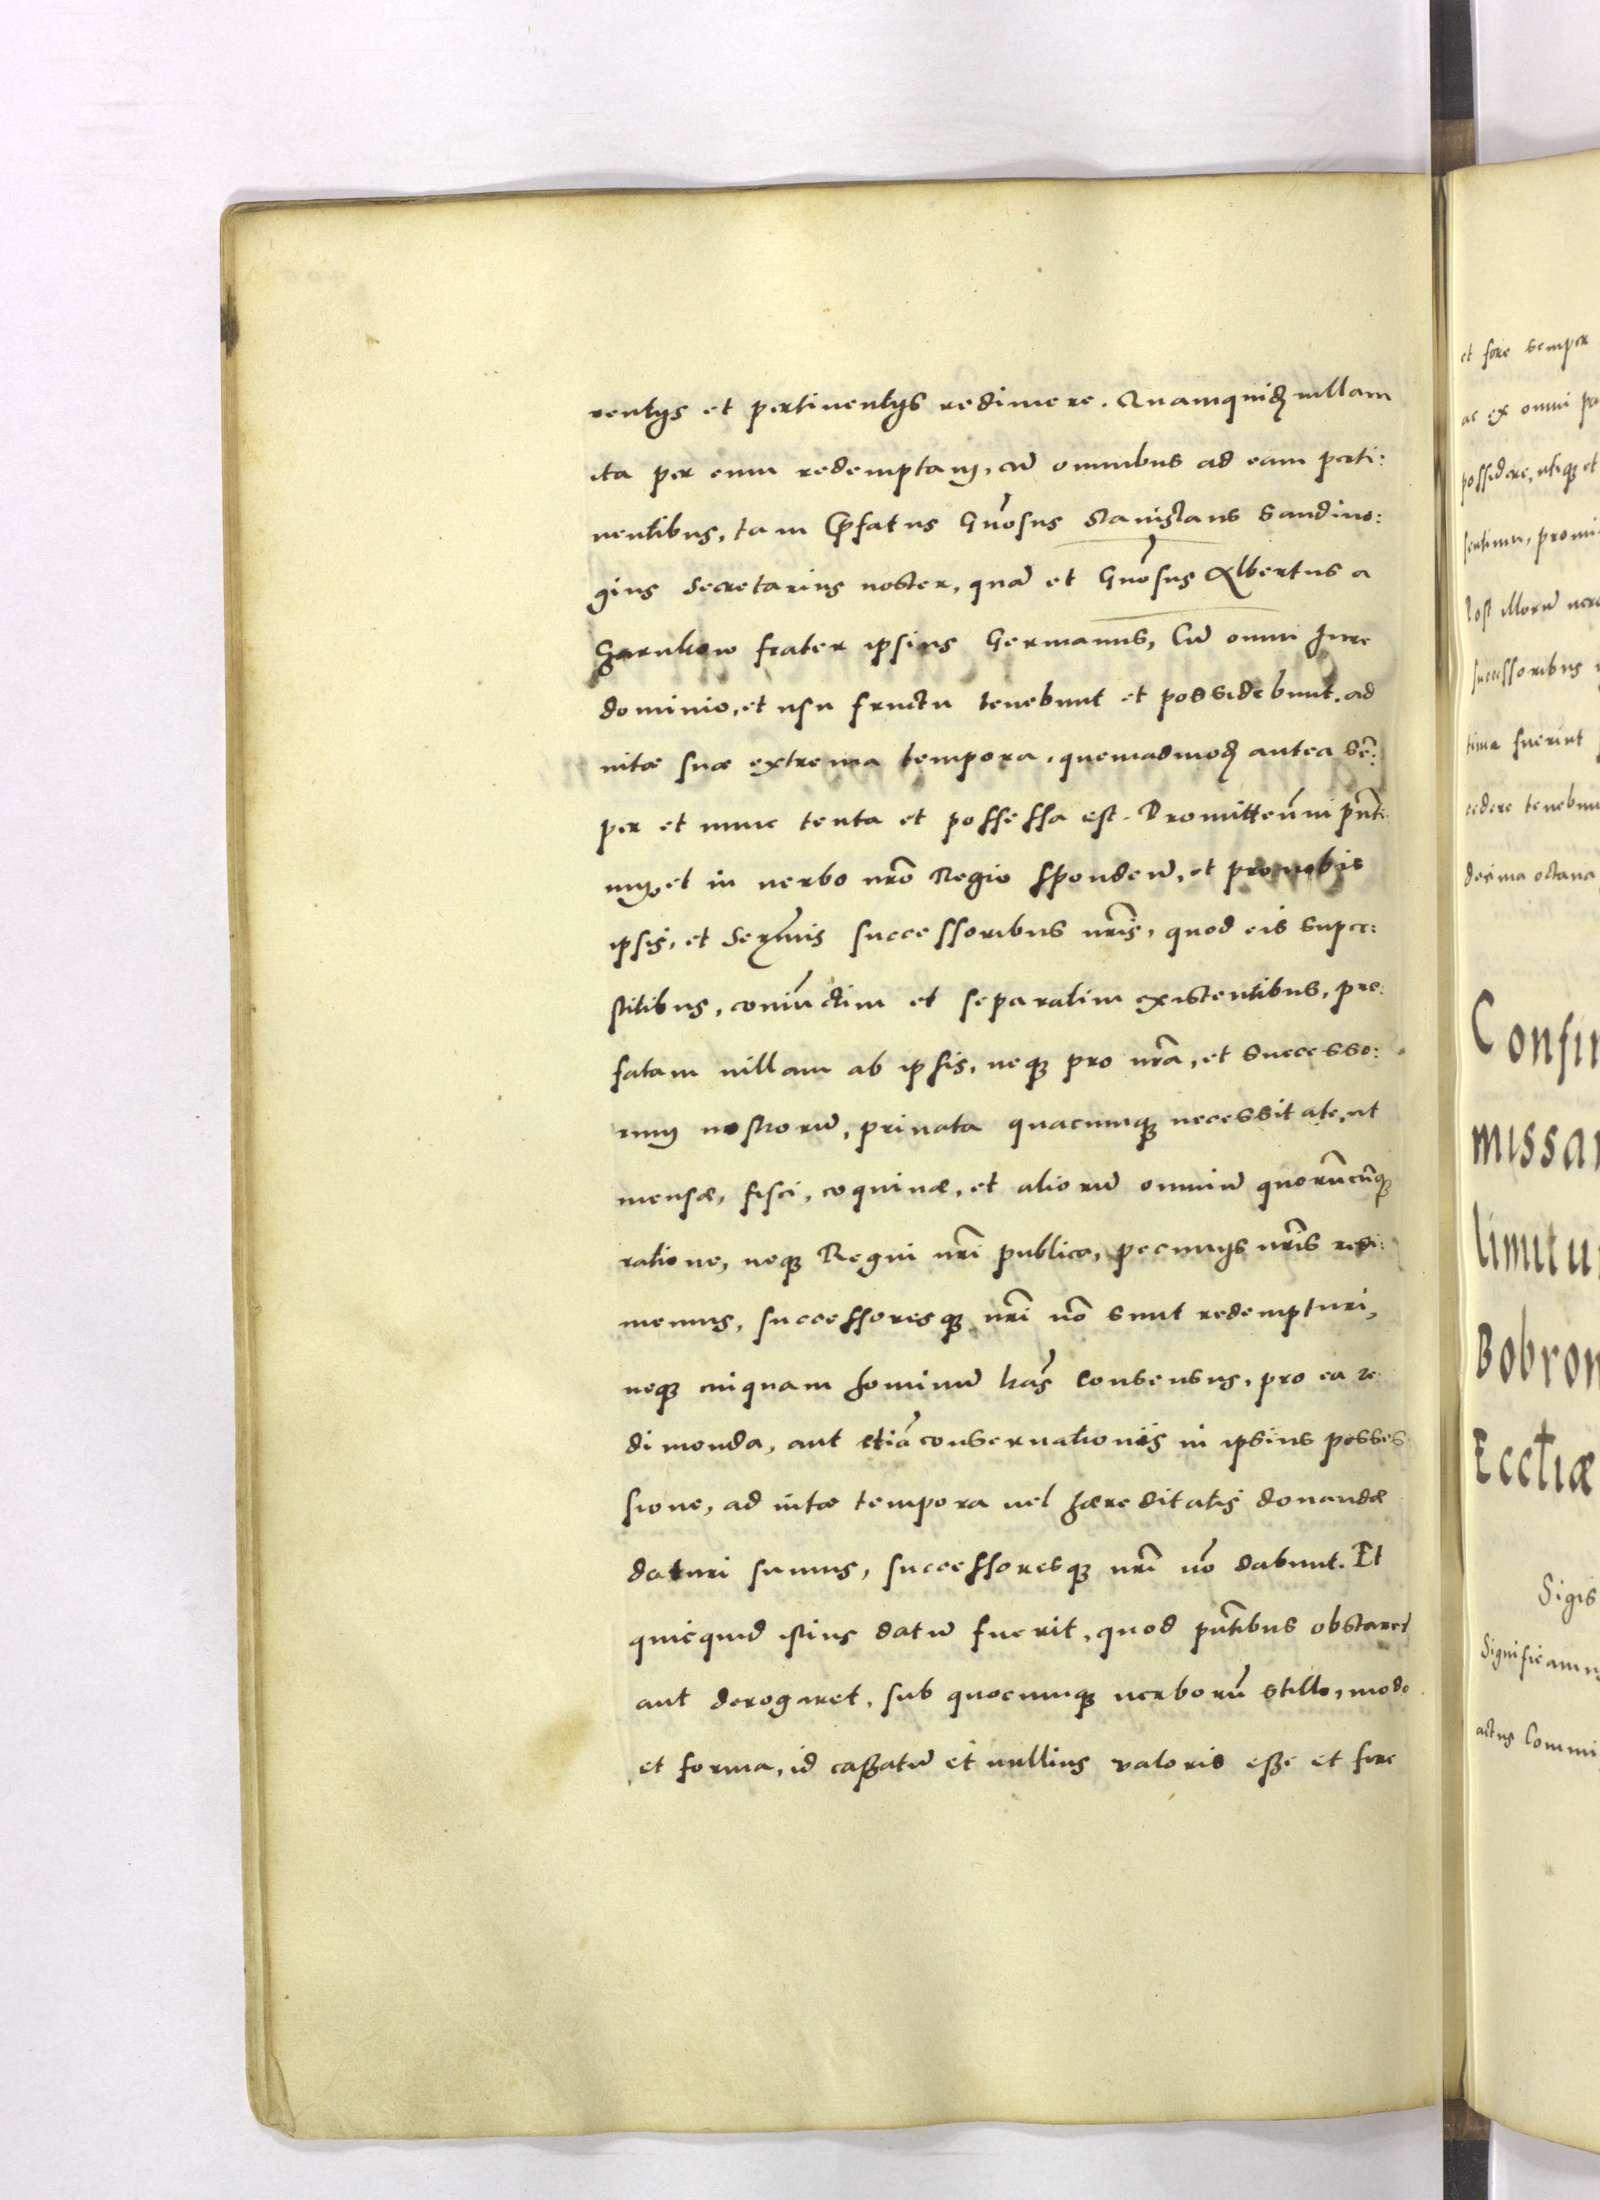 rentijs et pertinentijs redimere. Quamquidē villam
ita per eum redemptam, cū omnibus ad eam perti:
nentibus, tam Prfatus Gnosus Stanislaus Sandiuo:
gius Secretarius noster, quā et Gnosus Albertus a
Czarnkow frater ipsius Germanus, Cū omni Jure
dominio, et usu fructu tenebunt et possidebunt. ad
vitæ suæ extrema tempora, quemadmodū antea sē:
per et nunc tenta et possessa est. Promittentes pnti
et in verbo nrō Regio spondeū, et pro nobis
ipsis, et Serenmis successoribus nris, quod eis supers:
stitibus, coniūctim et separatim existentibus, pre:
fatam villam ab ipsis, neqz pro nrā, et successo:
rum nostrorū, priuata quacumqz necessitate, ut
mensæ, fisci, coquinæ, et aliorū omniū quorūcūqz
ratione, neqz Regni nri publica, pecunijs nris redi:
memus, successoresqz nri nō sunt redempturi,
neqz cuiquam hominū hāc consensus, pro ea re
dimenda, aut etiā conseruationis in ipsius posses
sione, ad vitæ tempora vel hæreditatis donandæ
daturi sumus, successoresqz nri nō dabunt. Et
quicquid istius datū fuerit, quod pntibus obstaret
aut derogaret, sub quocumqz verborū stillo, modo
et forma, id cassatū et nullius valoris esse et fore
et fore semper
ac ex omni
possidere, utiqz et
Post illorū vero
successoribus
fuerint
cedere
decima octaua
Confir
missar
limitu
Bobron
Eccliæ
Sigis
Significamus
actus Commi